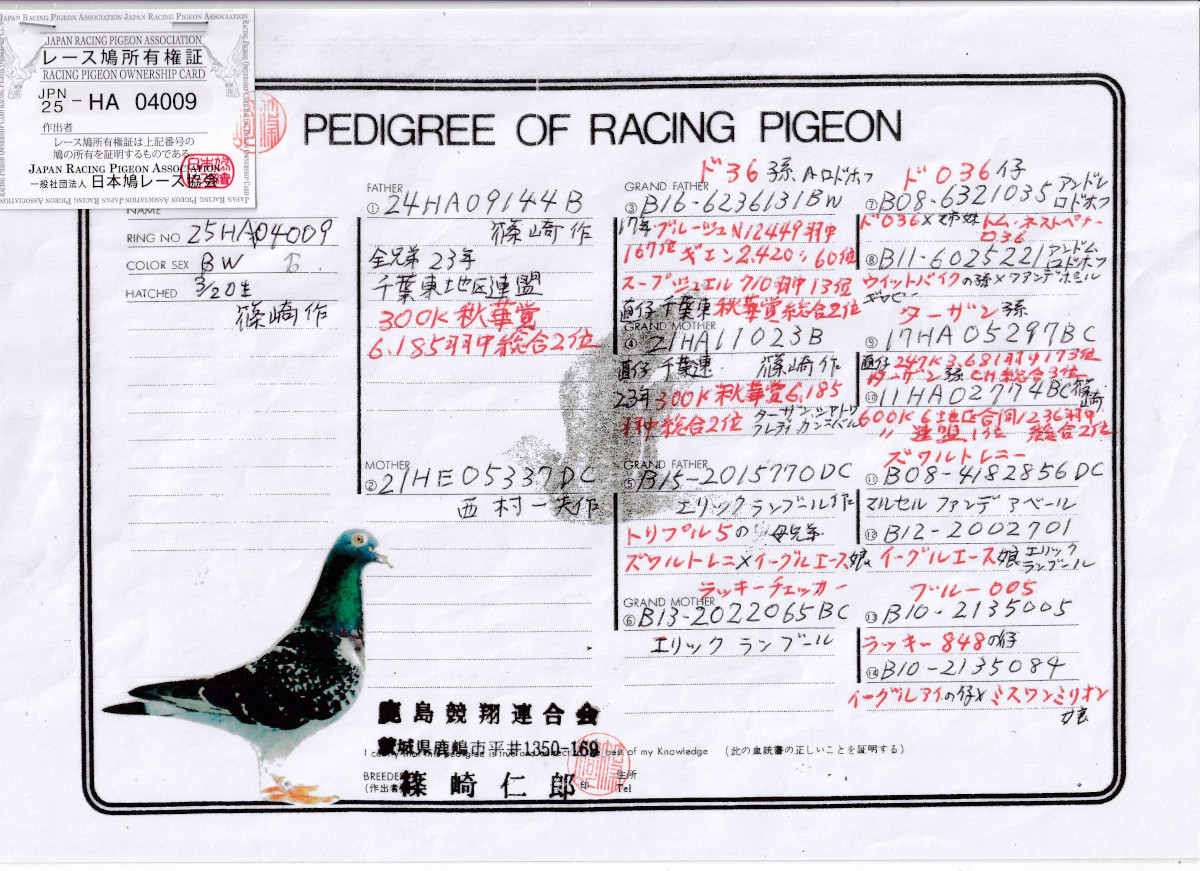 JAPAN RACING PIGEON ASSOCIATION JAPAN RACING PIGEON ASSOCIATION
JAPAN RACING PIGEON ASSOCIATION
レース鳩所有権証
RACING PIGEON OWNERSHIP CARD
JPN
25 - HA 04009
作出者
レース鳩所有権証は上記番号の
鳩の所有を証明するものである
JAPAN RACING PIGEON ASSOCIATION
一般社団法人 日本鳩レース協会
PEDIGREE OF RACING PIGEON
NAME
RING NO 25HA04009
COLOR SEX BW
HATCHED 3/20生
篠崎作
FATHER
① 24HA09144B
篠崎作
全兄弟 23年
千葉東地区連盟
300K 秋華賞
6.185羽中総合2位
MOTHER
② 21HE05337DC
西村一夫作
ド36 孫 Aロドホフ
GRAND FATHER
③ B16-6236131BW
17年ブルージュN12449羽中
167位 ギエン2,420〃60位
スープジュエル710羽中13位
直仔 千葉東 秋華賞総合2位
GRAND MOTHER
④ 21HA11023B
直仔 千葉連 篠崎作
23年300K秋華賞6.185
羽中総合2位
GRAND FATHER
⑤ B15-2015770DC
エリックランブール作
トリプル5の 母兄弟
ズワルトレニ×イーグルエース娘
ラッキーチェッカー
GRAND MOTHER
⑥ B13-2022065BC
エリック ランブール
ド036 仔
⑦ B08-6321035 アンドレ
ロドホフ
ド036×姉妹 トム・ネストペナー
036
⑧ B11-6025221 アンドム
ロドホフ
ウィットバイクの孫×ファンデボミル
ターザン 孫
⑨ 17HA05297BC
直仔 247K 3,681羽中173位
ターザン 孫 CH総合3位
⑩ 11HA02774BC 篠崎
600K 6地区合同1236羽中
〃 連盟 1位 総合2位
ズワルトレニー
⑪ B08-4182856DC
マルセル ファンデ アベール
⑫ B12-2002701
イーグルエース娘 エリック
ランブール
ブルー005
⑬ B10-2135005
ラッキー848の仔
⑭ B10-2135084
イーグルアイの仔×ミスワンミリオン
娘
鹿島競翔連合会
茨城県鹿嶋市平井1350-169
I certify that this pedigree is true and correct to the best of my Knowledge (此の血統書の正しいことを証明する)
BREEDER
(作出者名)
篠崎仁郎
印
住所
Tel